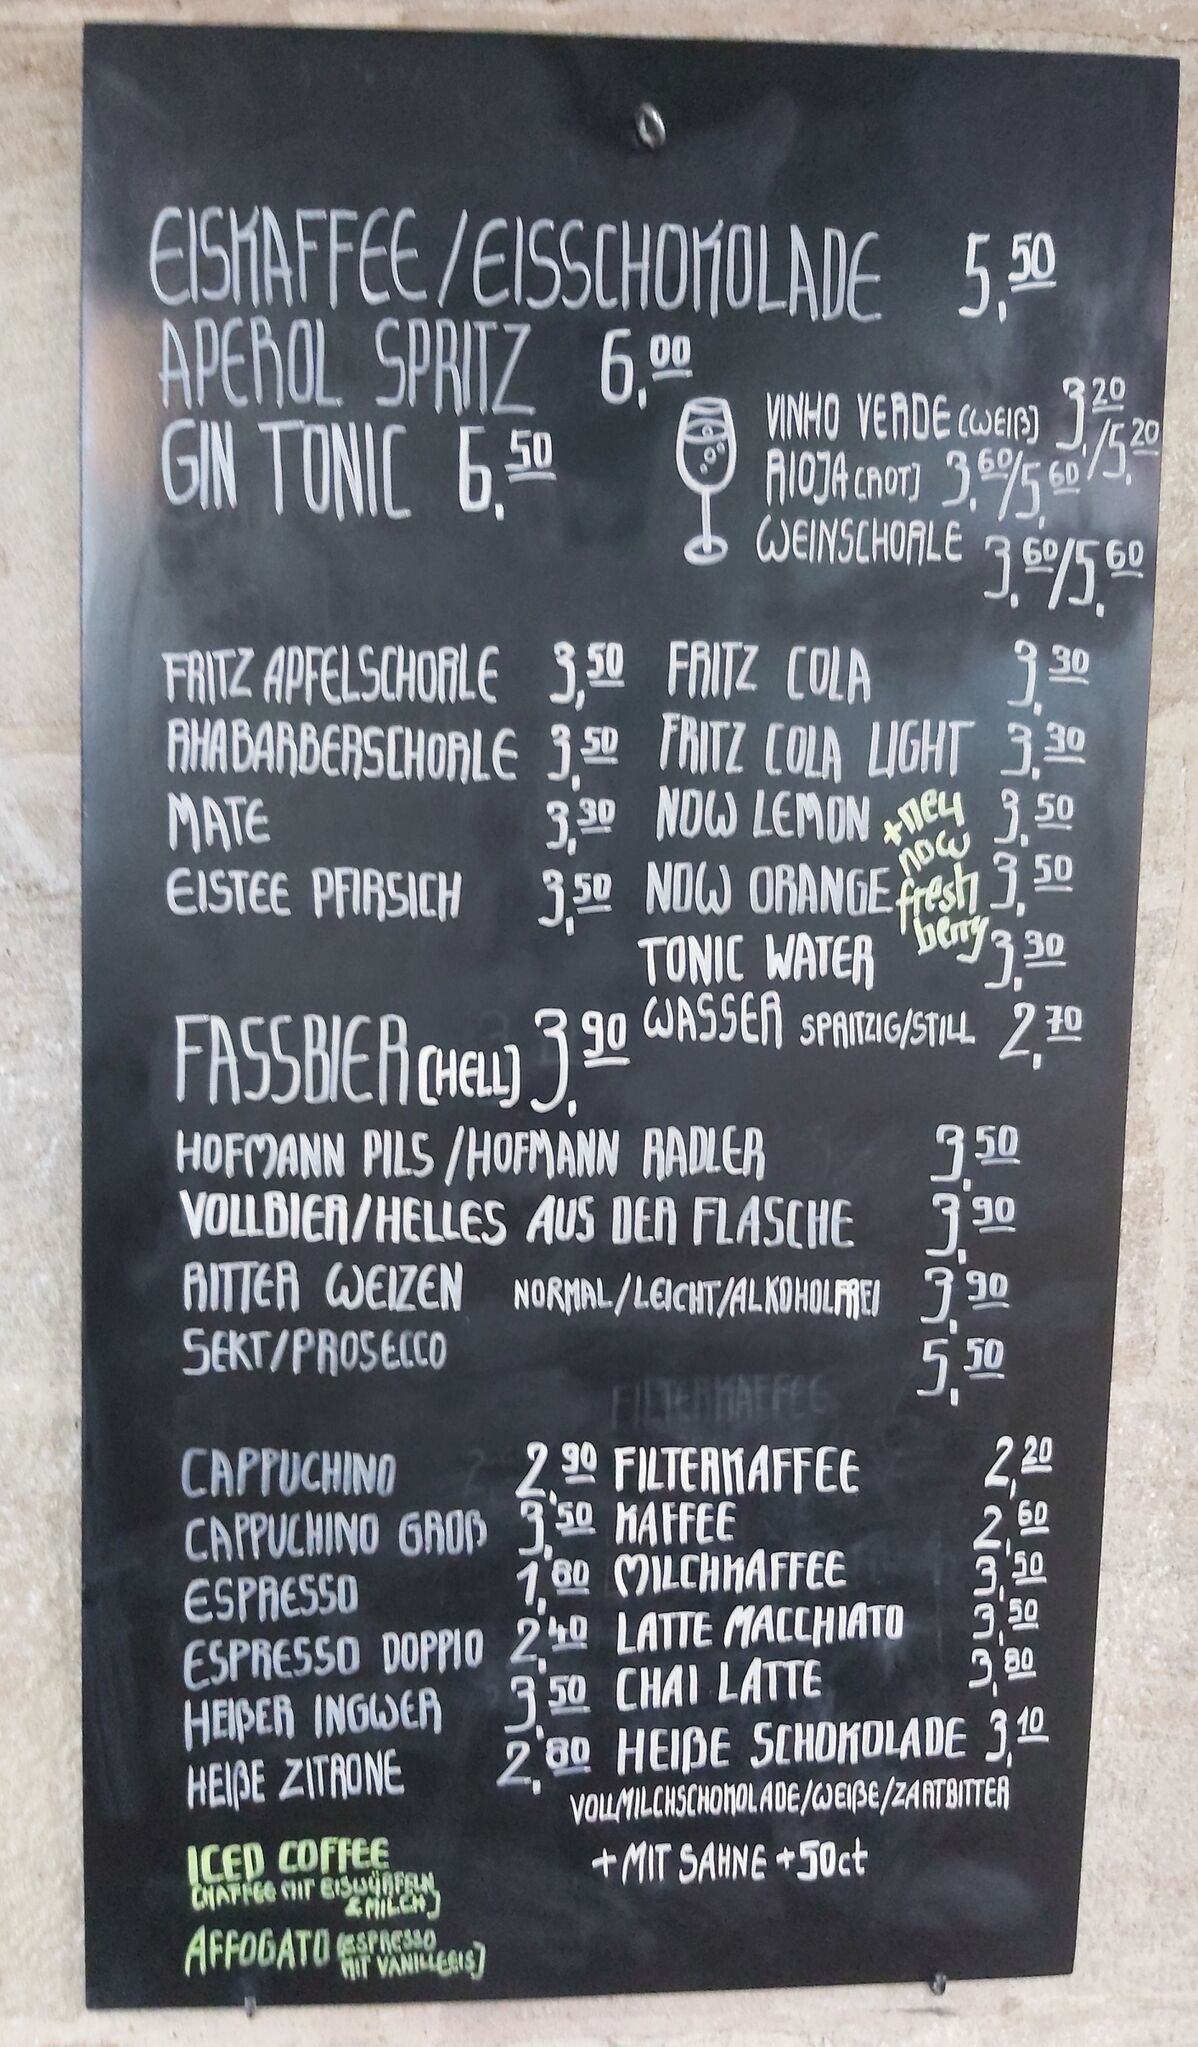 EISKAFFEE/EISSCHOKOLADE 5,50
APEROL SPRITZ 6,00
GIN TONIC 6,50
VINHO VERDE (WEIß) 3,20/5,20
RIOJA (ROT) 3,60/5,60
WEINSCHORLE 3,60/5,60
FRITZ APFELSCHORLE 3,50
RHABARBERSCHORLE 3,50
MATE 3,30
EISTEE PFIRSICH 3,50
FRITZ COLA 3,30
FRITZ COLA LIGHT 3,30
NOW LEMON 3,50
NOW ORANGE 3,50
+neu
now
fresh
berry
TONIC WATER 3,30
WASSER SPRITZIG/STILL 2,70
FASSBIER (HELL) 3,90
HOFMANN PILS/HOFMANN RADLER 3,50
VOLLBIER/HELLES AUS DER FLASCHE 3,90
RITTER WEIZEN NORMAL/LEICHT/ALKOHOLFREI 3,90
SEKT/PROSECCO 5,50
FILTERKAFFEE
CAPPUCHINO 2,90
CAPPUCHINO GROß 3,50
ESPRESSO 1,80
ESPRESSO DOPPIO 2,40
HEIßER INGWER 3,50
HEIßE ZITRONE 2,80
FILTERKAFFEE 2,20
KAFFEE 2,60
MILCHKAFFEE 3,50
LATTE MACCHIATO 3,50
CHAI LATTE 3,80
HEIßE SCHOKOLADE 3,10
VOLLMILCHSCHOKOLADE/WEIßE/ZARTBITTER
+MIT SAHNE +50ct
ICED COFFEE
(KAFFEE MIT EISWÜRFELN
& MILCH)
AFFOGATO (ESPRESSO
MIT VANILLEEIS)